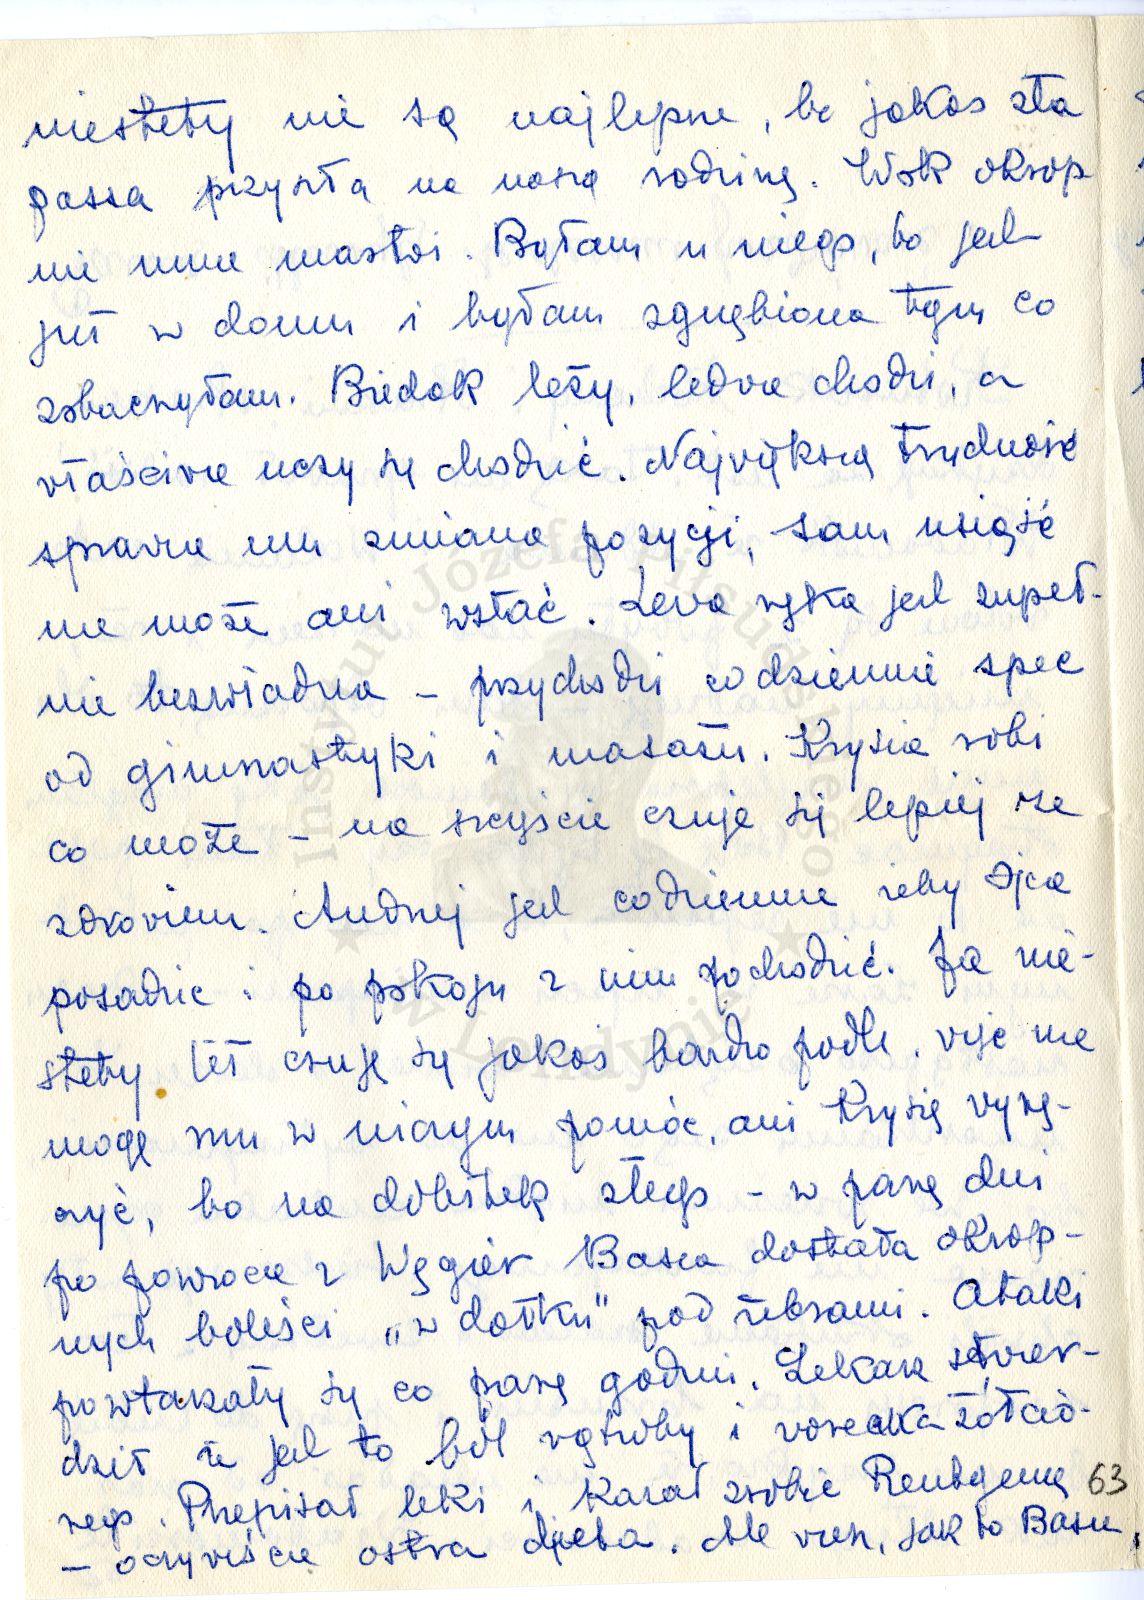 niestety nie są najlepsze, bo jakoś zła
passa przyszła na naszą rodzinę. Wok okrop
nie mnie martwi. Byłam u niego, bo jest
już w domu i byłam zgnębiona tym co
zobaczyłam. Biedak leży, ledwie chodzi, a
właściwie uczy się chodzić. Największą trudność
sprawia mu zmiana pozycji, sam usiąść
nie może ani wstać. Lewa ręka jest zupeł-
nie bezwładna – przychodzi codziennie spec
od gimnastyki i masażu. Krysia robi
co może – na szczęście czuje się lepiej ze
zdrowiem. Andrzej jest codziennie żeby Ojca
posadzić i po pokoju z nim pochodzić. Ja nie-
stety też czuję się jakoś bardzo podle, więc nie
mogę mu w niczym pomóc, ani Krysię wyrę-
czyć, bo na dobitek złego – w parę dni
po powrocie z Węgier Basia dostała okrop-
nych boleści „w dołku" pod żebrami. Ataki
powtarzały się co parę godzin. Lekarz stwier-
dził że jest to ból wątroby i woreczka żółcio-
wego. Przepisał leki i kazał zrobić Rentgena 63
– oczywiście ostra dieta. Ale wiesz, jak to Basia,
Instytut Józefa Piłsudskiego
w Londynie